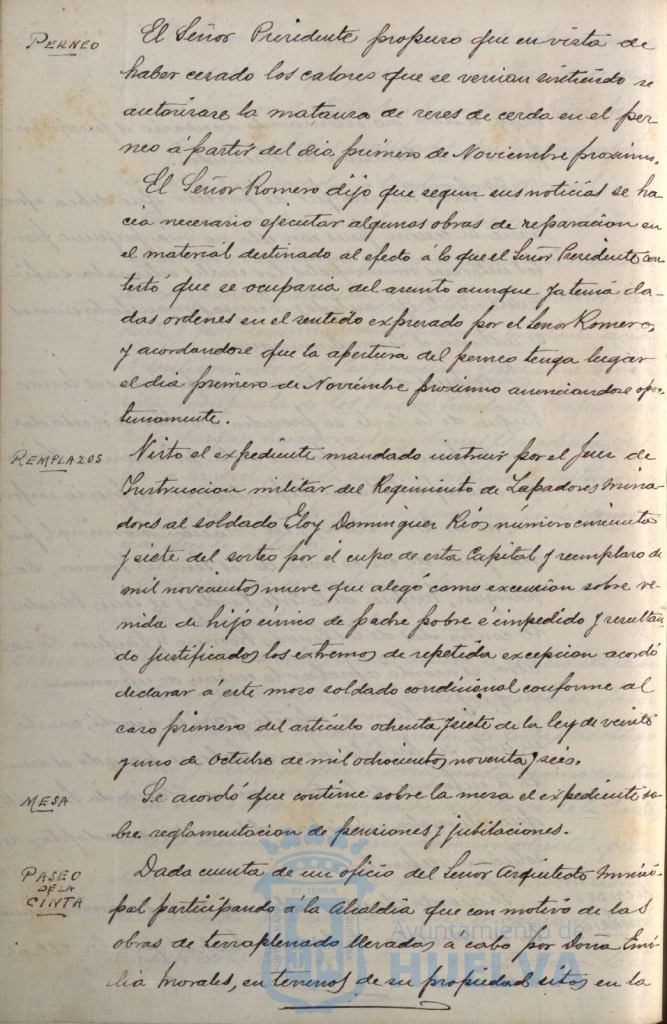 PERNEO
El Señor Presidente propuso que en vista de
haber cesado los calores que se venian sintiendo se
autorizase la matanza de reses de cerda en el per-
neo á partir del dia primero de Noviembre proximo.
El Señor Romero dijo que segun sus noticias se ha
cia necesario ejecutar algunas obras de reparacion en
el material destinado al efecto á lo que el Señor Presidente con
testó que se ocuparia del asunto aunque ya tenia da-
das ordenes en el sentido expresado por el Señor Romero,
y acordandose que la apertura del perneo tenga lugar
el dia primero de Noviembre proximo anunciandose opor
tunamente.
REMPLAZOS
Visto el expediente mandado instruir por el Juez de
Instruccion militar del Regimiento de Zapadores Mina-
dores al soldado Eloy Dominguez Rios número cincuenta
y siete del sorteo por el cupo de esta Capital y reemplazo de
mil novecientos nueve que alegó como excension sobre ve-
nida de hijo único de padre pobre é impedido y resultan
do justificados los extremos de repetida excepcion acordó
declarar á este mozo soldado condicional conforme al
caso primero del artículo ochenta y siete de la ley de veinte
y uno de Octubre de mil ochocientos noventa y seis.
MESA
Se acordó que continue sobre la mesa el expediente so-
bre reglamentacion de pensiones y jubilaciones.
PASEO
DE LA
CINTA
Dada cuenta de un oficio del Señor Arquitecto Munici-
pal participando á la Alcaldia que con motivo de las
obras de terraplenado llevadas a cabo por Doña Emi-
lia Morales, en terrenos de su propiedad sitos en la
Ayuntamiento de
HUELVA